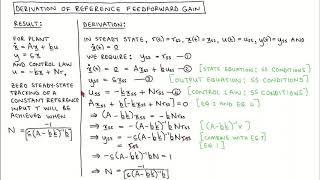 DERIVATION OF REFERENCE FEEDFORWARD GAIN
RESULT:
FOR PLANT
ẋ = Ax + bu
y = cx
AND CONTROL LAW
u = -kx + Nr,
ZERO STEADY-STATE
TRACKING OF A
CONSTANT REFERENCE
INPUT r WILL BE
ACHIEVED WHEN
N = -1 / c(A-bk)⁻¹b
DERIVATION:
IN STEADY STATE, r(t) = rss, x(t) = xss, u(t) = uss, y(t) = yss AND
ẋ(t) = 0 WE REQUIRE: yss = rss - ①
ẋ(t) = 0 = Axss + buss - ② [STATE EQUATION; SS CONDITIONS]
yss = cxss - ③ [OUTPUT EQUATION; SS CONDITIONS]
uss = -kxss + Nrss - ④ [CONTROL LAW; SS CONDITIONS]
Axss + b[-kxss + Nrss] = 0 [EQ 2 AND EQ 4]
⇒ (A-bk)xss = -bNrss
⇒ xss = -(A-bk)⁻¹bNrss
⇒ yss = -c(A-bk)⁻¹bNrss
⇒ -c(A-bk)⁻¹bN = 1
⇒ N = -1 / c(A-bk)⁻¹b